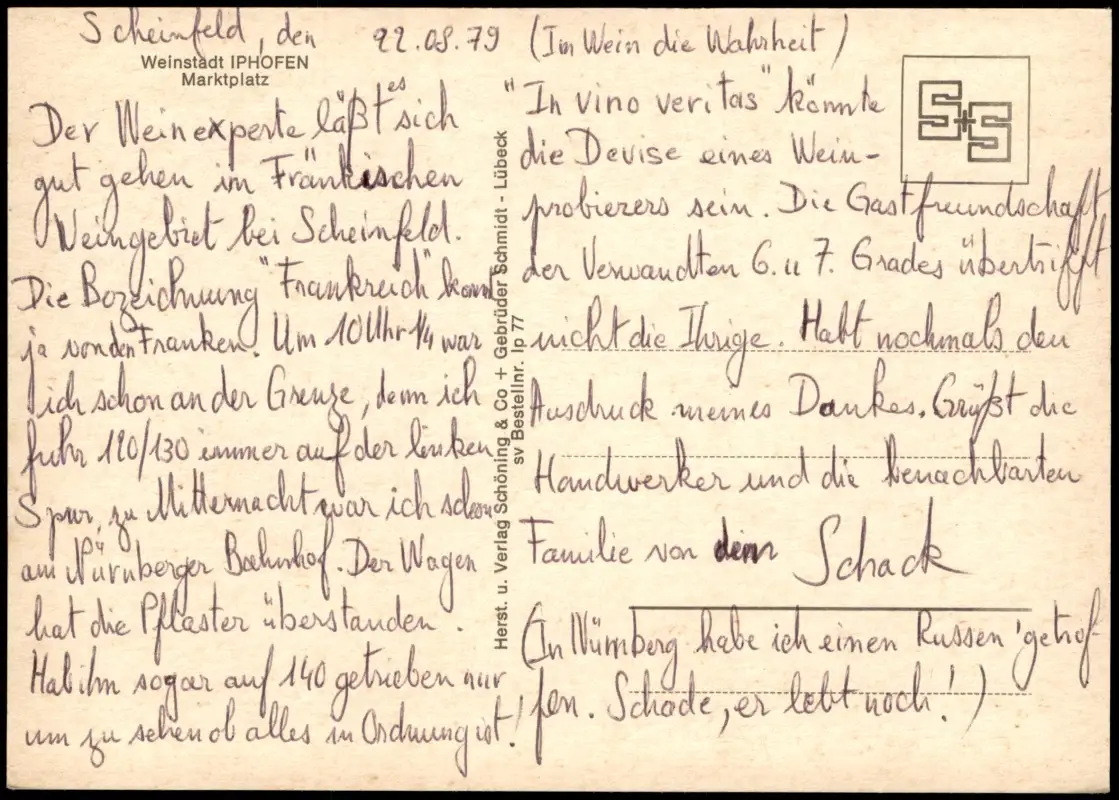 Scheinfeld, den 22.08.79
Weinstadt IPHOFEN
Marktplatz
Der Weinexperte läßt es sich
gut gehen im Fränkischen
Weingebiet bei Scheinfeld.
Die Bezeichnung "Frankreich" kommt
ja von den Franken. Um 10 Uhr 1/4 war
ich schon an der Grenze, denn ich
fuhr 120/130 immer auf der linken
Spur, zu Mitternacht war ich schon
am Nürnberger Bahnhof. Der Wagen
hat die Pflaster überstanden.
Hab ihn sogar auf 140 getrieben nur
um zu sehen ob alles in Ordnung ist!
Herst. u. Verlag Schöning & Co + Gebrüder Schmidt - Lübeck
sv Bestellnr. Ip 77
(Im Wein die Wahrheit)
"In vino veritas" könnte
die Devise eines Wein-
probierers sein. Die Gastfreundschaft
der Verwandten 6. u 7. Grades übertrifft
nicht die Ihrige. Habt nochmals den
Ausdruck meines Dankes. Grüßt die
Handwerker und die benachbarten
Familie von dem Schack
(In Nürnberg habe ich einen Russen 'getrof-
fen. Schade, er lebt noch!')
S+S